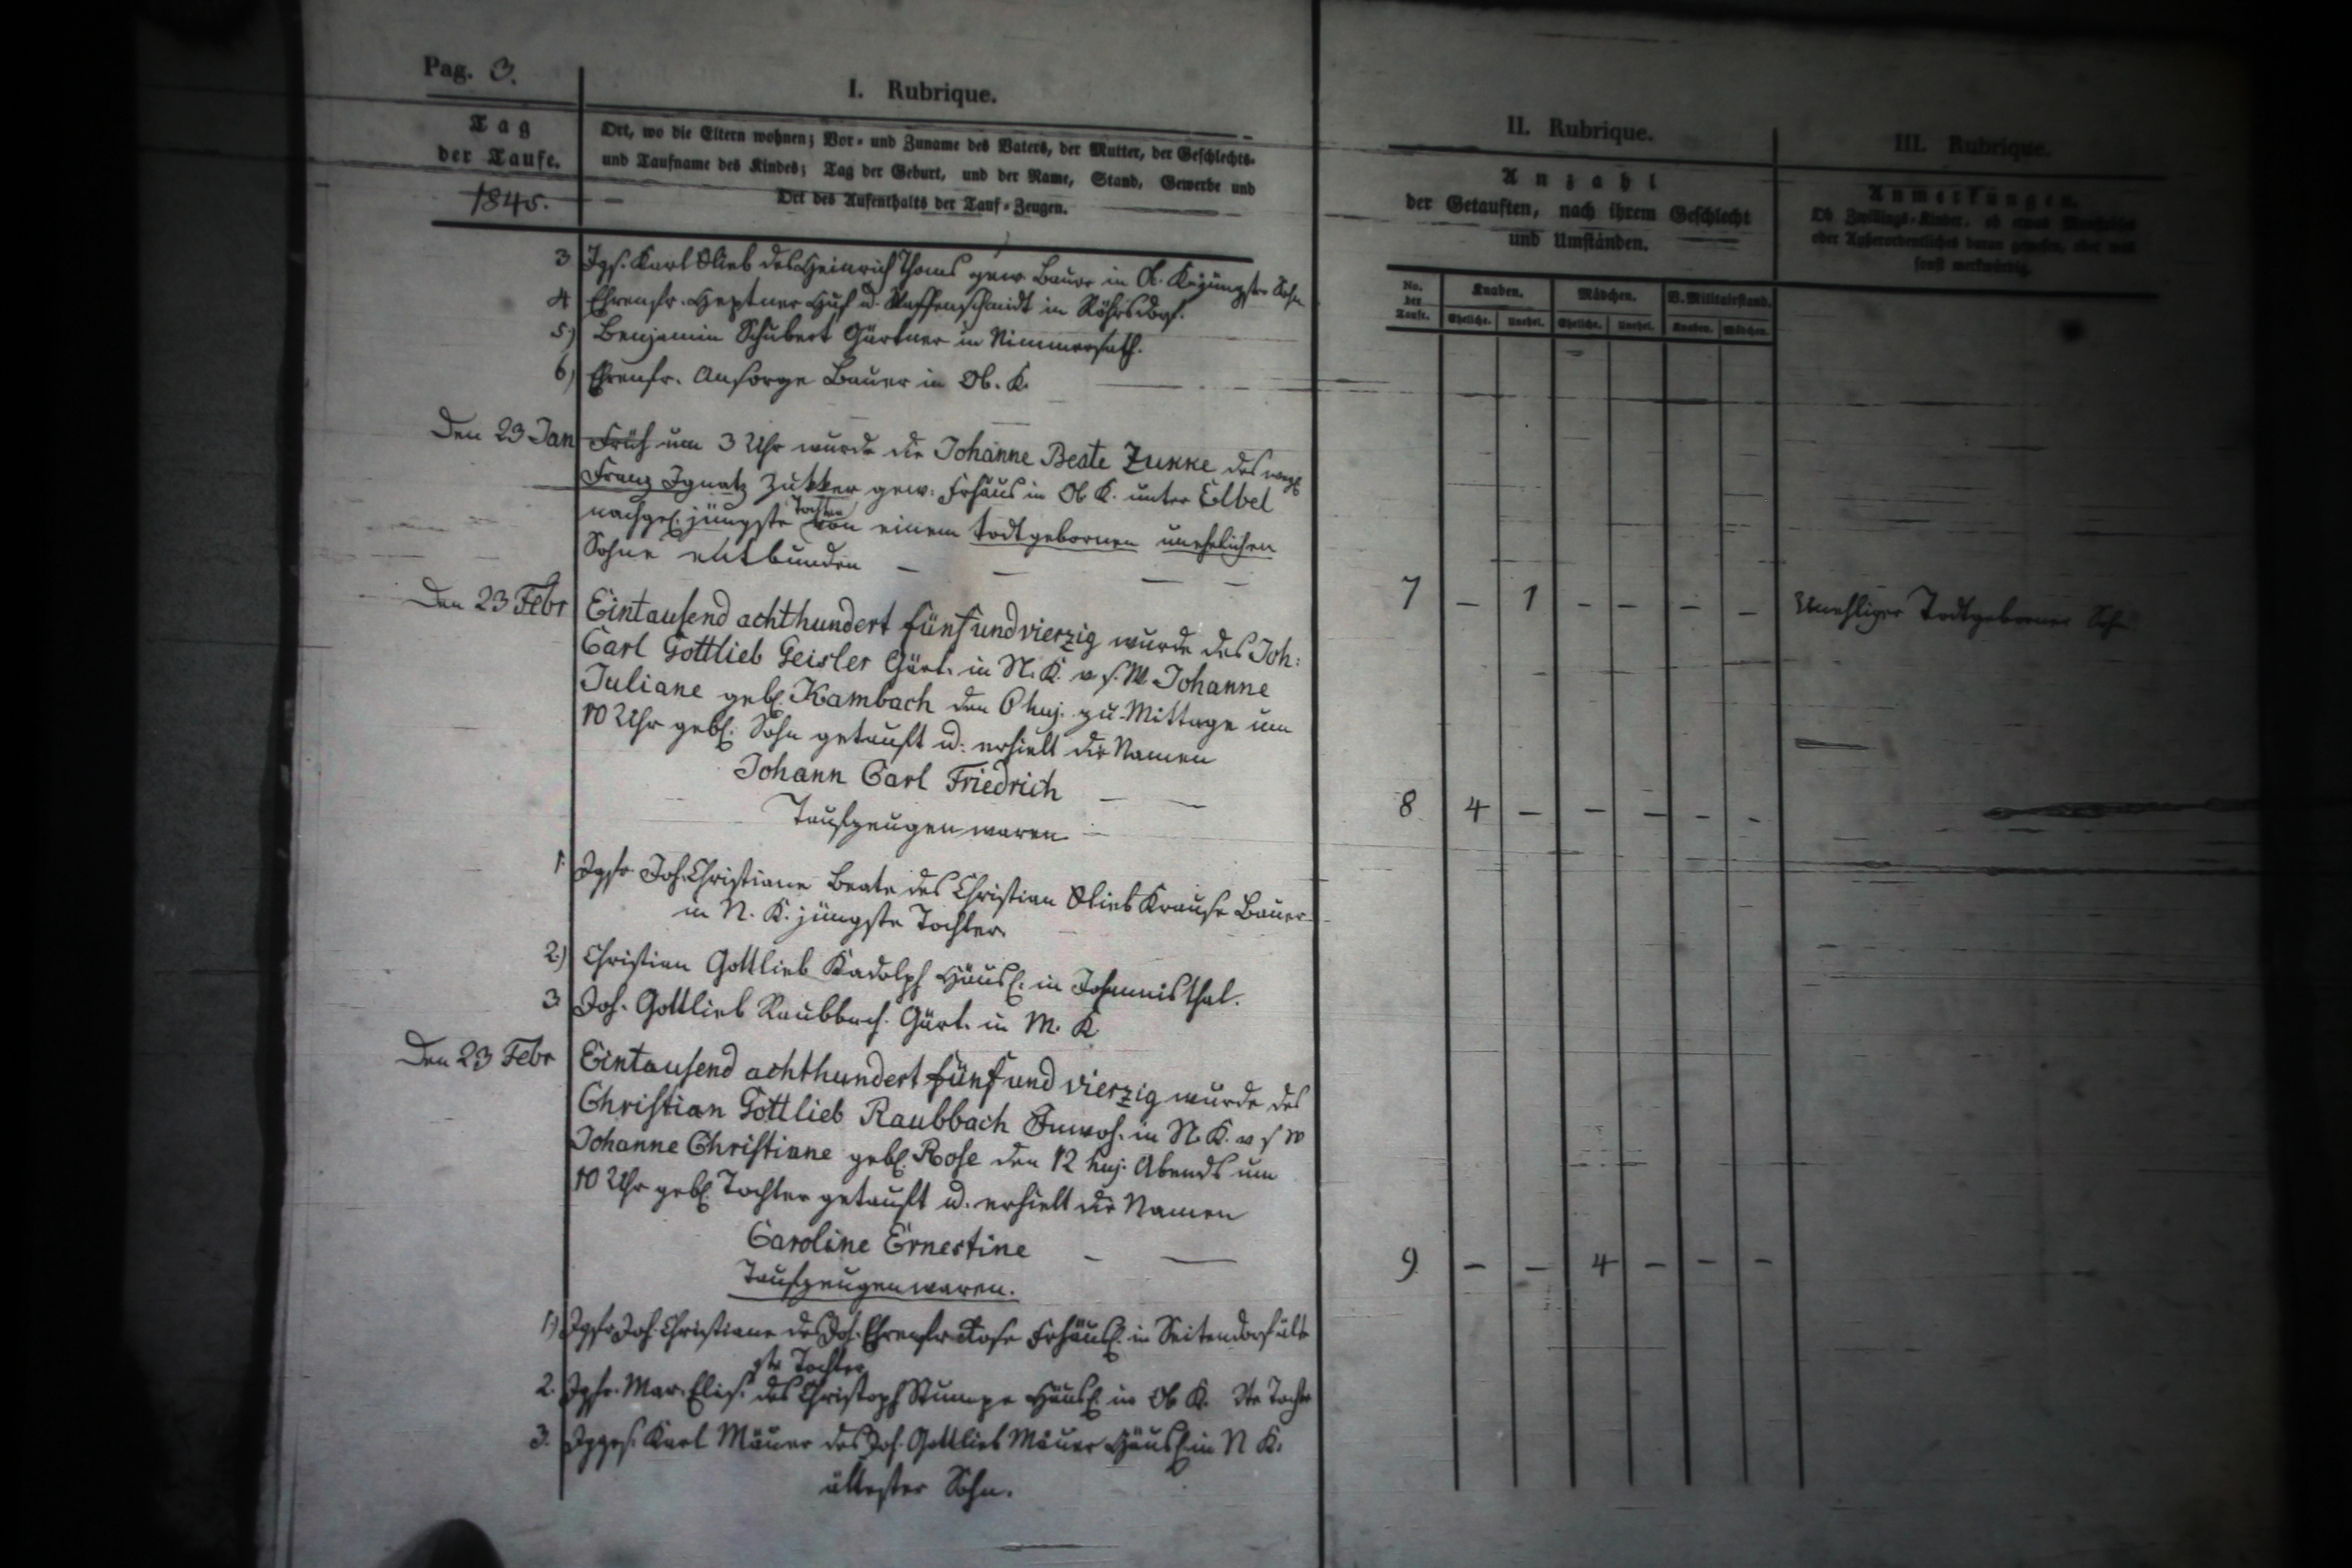 Pag. 3.
I. Rubrique.
Tag
der Taufe.
1845.
Ort, wo die Eltern wohnen; Vor- und Zuname des Vaters, der Mutter, der Geschlechts-
und Taufname des Kindes; Tag der Geburt, und der Name, Stand, Gewerbe und
Ort des Aufenthalts der Tauf-Zeugen.
3 Jgs. Karl Glieb des Heinrich Thoms gew. Bauer in Ob. K. jüngster Sohn
4 Ehrenfr. Heptner Huf u. Waffenschmidt in Röhrsdorf.
5) Benjamin Schubert Gärtner in Nimmersath.
6) Ehrenfr. Ansorge Bauer in Ob. K.
Den 23 Jan Früh um 3 Uhr wurde die Johanne Beate Zukke des
Franz Ignatz Zukker gew. Frhäus in Ob K. unter Elbel
nachgel. jüngste Tochter von einem todtgebornen unehelichen
Sohne entbunden
Den 23 Febr Eintausend achthundert fünfundvierzig wurde des Joh:
Carl Gottlieb Geisler Gärt. in N. K. v. s. W Johanne
Juliane geb. Kambach den 6 huj. zu Mittage um
10 Uhr geb. Sohn getauft u. erhielt die Namen
Johann Carl Friedrich
Taufzeugen waren
1. Jgfr Joh. Christiane Beate des Christian Glieb Krause Bauer
in N. K. jüngste Tochter
2.) Christian Gottlieb Kadolph Häusl. in Johannisthal.
3 Joh. Gottlieb Raubbach. Gärt. in M. K
Den 23 Febr Eintausend achthundert fünf und vierzig wurde des
Christian Gottlieb Raubbach Inwoh. in N. K. v s W
Johanne Christiane geb. Rose den 12 huj. Abends um
10 Uhr geb. Tochter getauft u. erhielt die Namen
Caroline Ernestine
Taufzeugen waren.
1.) Jgfr Joh. Christiane des Joh. Ehrenfr. Rose Frhäusl. in Seitendorf älte
ste Tochter
2. Jgfr. Mar. Elis. des Christoph Stumpe Häusl. in Ob K. 2te Tochter
3. Jggs. Karl Mäuer des Joh. Gottlieb Mäuer Häusl in N K.
ältester Sohn.
II. Rubrique.
Anzahl
der Getauften, nach ihrem Geschlecht
und Umständen.
No. der Taufe. Knaben. Mädchen. V. Militairstand.
Eheliche. Unehel. Eheliche. Unehel. Knaben. Mädchen.
7 – 1 – – – –
8 4 – – – – –
9 – – 4 – – –
III. Rubrique.
Anmerkungen.
Ob Zwillings-Kinder, ob etwas
oder Außerordentliches daran gewesen, oder was
sonst merkwürdig.
Unehliger Todtgeborner Sohn